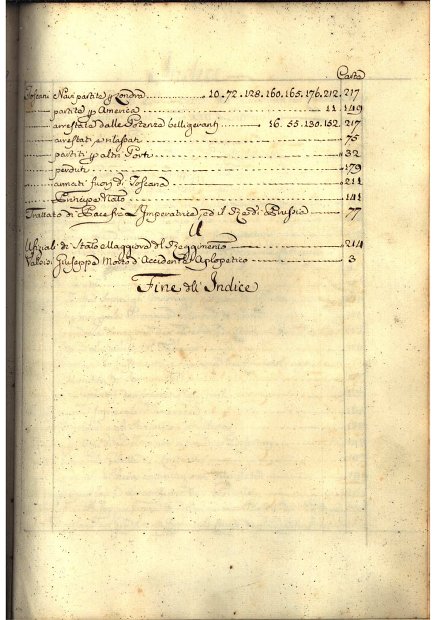 Carta
Toscani Navi partite p Londra 10. 72. 128. 160. 165. 176. 212. 217
partite p America 11. 149
arrestate dalle Potenze belligeranti 16. 55. 130. 152. 217
arrestati, e rilasciati 75
partiti p altri Porti 32
perduti 179
armati fuori di Toscana 211
Principe Nato 141
Trattato di Pace frà L'Imperatrice, ed il Re di Prussia 77
U
Ufiziali di Stato Maggiore del Reggimento 214
Giuseppe Morto d'Accidente Aplopetico 3
Fine dell Indice